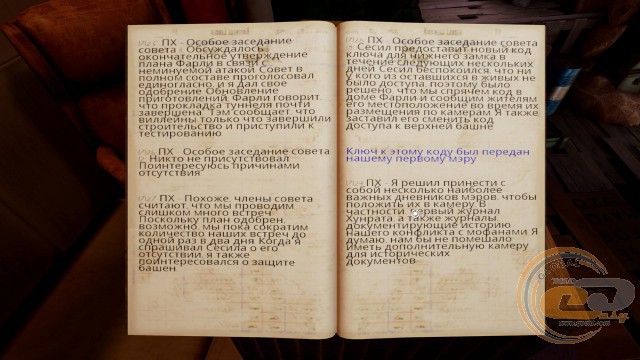 ПХ - Особое заседание
совета - Обсуждалось
окончательное утверждение
плана Фарли в связи с
неминуемой атакой. Совет в
полном составе проголосовал
единогласно, и я дал свое
одобрение. Обновление
приготовлений: Фарли говорит,
что прокладка туннеля почти
завершена. Тэм сообщает, что
виллейны только что завершили
строительство и приступили к
тестированию
ПХ - Особое заседание совета
- Никто не присутствовал.
Поинтересуюсь причинами
отсутствия
ПХ - Похоже, члены совета
считают, что мы проводим
слишком много встреч.
Поскольку план одобрен,
возможно, мы пока сократим
количество наших встреч до
одной раз в два дня. Когда я
спрашивал Сесила о его
отсутствии, я также
поинтересовался о защите
башен
ПХ - Особое заседание совета
- Сесил предоставит новый код
ключа для нижнего замка в
течение следующих нескольких
дней. Сесил беспокоился, что ни
у кого из оставшихся в живых не
было доступа, поэтому было
решено, что мы спрячем код в
доме Фарли и сообщим жителям
его местоположение во время их
размещения по камерам. Я также
заставил его сменить код
доступа к верхней башне
Ключ к этому коду был передан
нашему первому мэру
ПХ - Я решил принести с
собой несколько наиболее
важных дневников мэров, чтобы
положить их в камеру. В
частности, первый журнал
Хунрата, а также журналы,
документирующие историю
нашего конфликта с мофанами. Я
думаю, нам бы не помешало
иметь дополнительную камеру
для исторических
документов